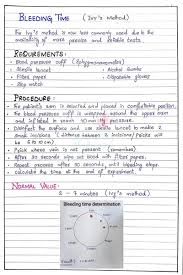 BLEEDING TIME (Ivy's Method)
The Ivy's method is now less commonly used due to the
availability of more precise and reliable tests.
REQUIREMENTS:
Blood pressure cuff (Sphygmomanometer)
Single lancet
Alcohol swabs
Filter paper
Disposable gloves
Stop watch
PROCEDURE:
The patient's arm is selected and placed in comfortable position.
The blood pressure cuff is wrapped around the upper arm
and inflated to reach 40 mmHg pressure.
Disinfect the surface and use sterile lancet to make 2
small incisions (distance between 2 incisions/Pricks will
be 5 to 10 cm)
Prick where vein is not present (remember)
After 30 seconds wipe out blood with filter paper.
Repeat after 30 seconds, until bleeding stops.
Calculate the time at the end of experiment.
NORMAL VALUE:
2 – 7 minutes (Ivy's method)
Bleeding time determination